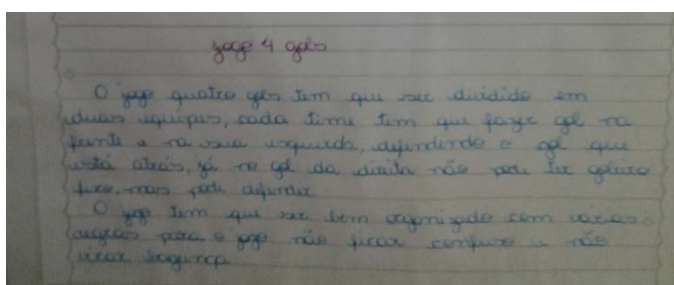 jogo 4 gols
O jogo quatro gols tem que ser dividido em
duas equipes, cada time tem que fazer gol na
frente e na sua esquerda, defendendo o gol que
está atrás, já no gol da direita não pode ter goleiro
fixo, mas pode defender.
O jogo tem que ser bem organizado com várias
regras para o jogo não ficar confuso e não
virar bagunça.